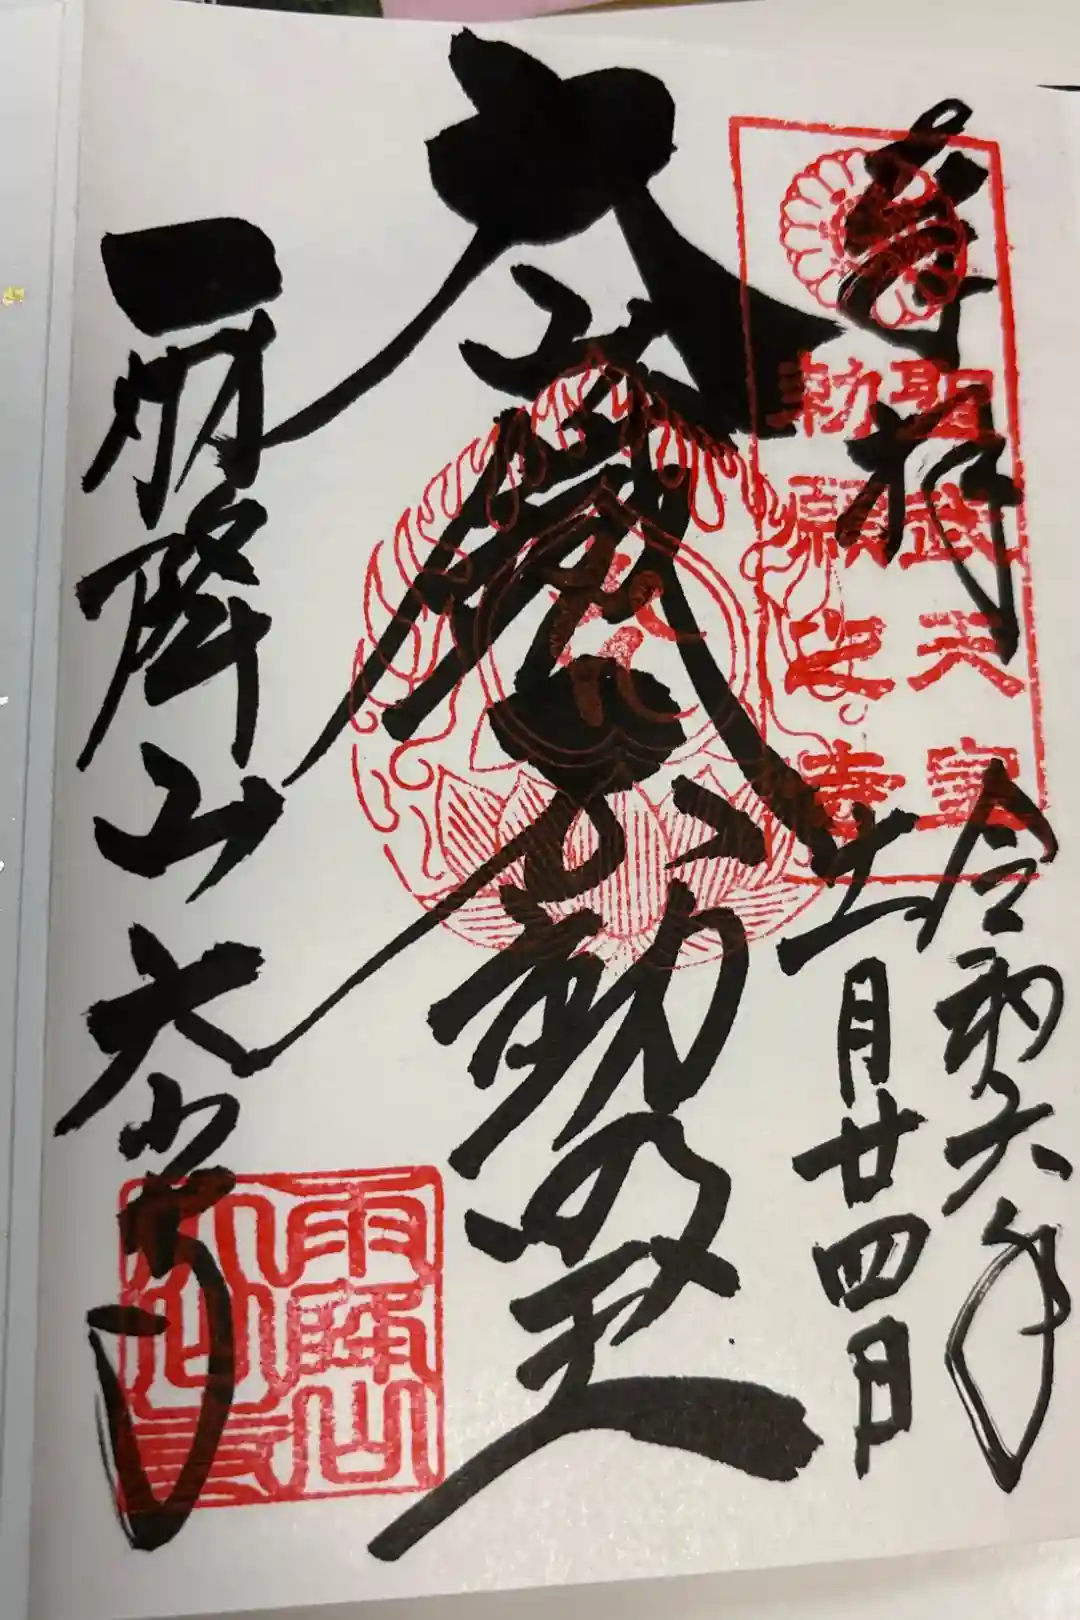 奉拝
聖武天皇
勅願之寺
令和六年
十一月廿四日
大山鐵不動明王
雨降山大山寺
雨降山